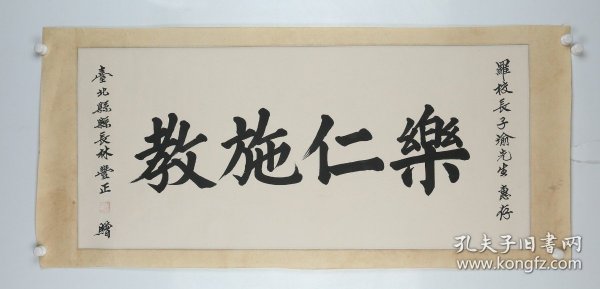 羅校長子瑜先生 惠存
樂仁施教
臺北縣縣長林豐正 贈
孔夫子旧书网
www.kongfz.com